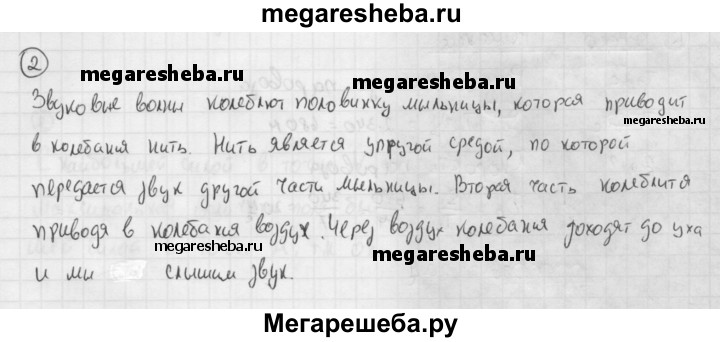 megaresheba.ru
2
megaresheba.ru
megaresheba.ru
Звуковые волны колеблют половинку мыльницы, которая приводит
в колебания нить. Нить является упругой средой, по которой
передается звук другой части мыльницы. Вторая часть колеблится
приводя в колебания воздух. Через воздух колебания доходят до уха
megaresheba.ru
megaresheba.ru
и ми слышим звук.
Мегарешеба.ру